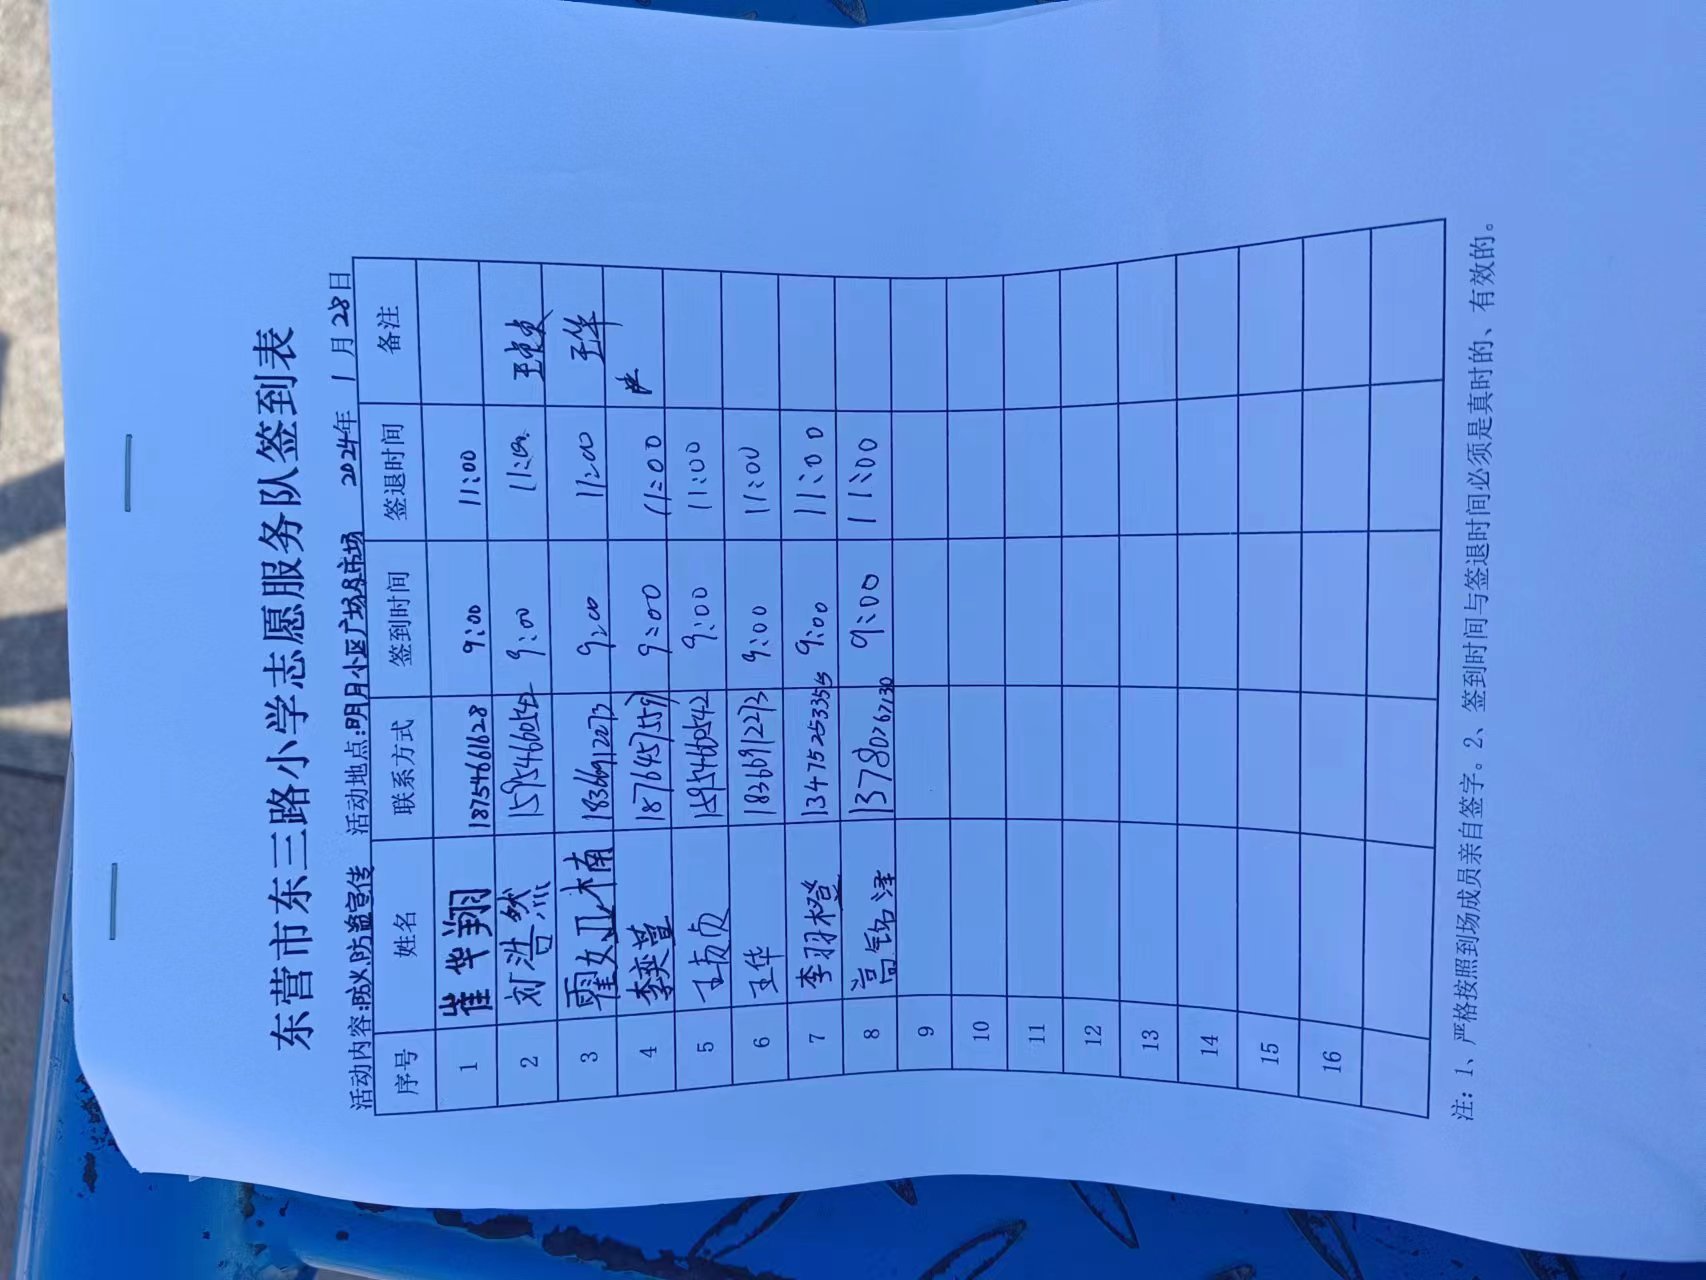 东营市东三路小学志愿服务队签到表
活动内容:防火防盗宣传 活动地点:明月小区广场及市场 2024年 1 月 28 日
序号 姓名 联系方式 签到时间 签退时间 备注
1 崔华翔 18754661628 9:00 11:00
2 刘浩然 15954660542 9:00 11:00
3 霍如楠 9:00 11:00 王华
4 李奕萱 18764571559 9:00 11:00
5 王贞 15954660542 9:00 11:00
6 王华 18366912273 9:00 11:00
7 李羽橙 13475253355 9:00 11:00
8 高铭泽 13780767130 9:00 11:00
9
10
11
12
13
14
15
16
注: 1、严格按照到场成员亲自签字。2、签到时间与签退时间必须是真时的、有效的。